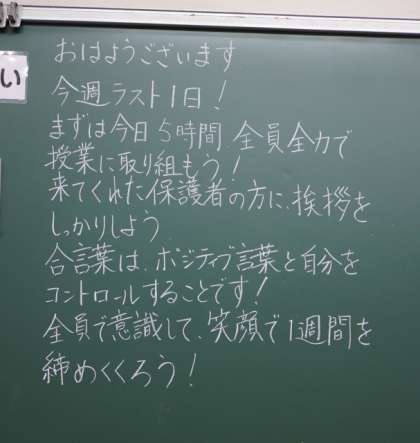 おはようございます
い
今週ラスト1日!
まずは今日5時間、全員全力で
授業に取り組もう!
来てくれた保護者の方に、挨拶を
しっかりしよう
合言葉は、ポジティブ言葉と自分を
コントロールすることです!
全員で意識して、笑顔で1週間を
締めくくろう!